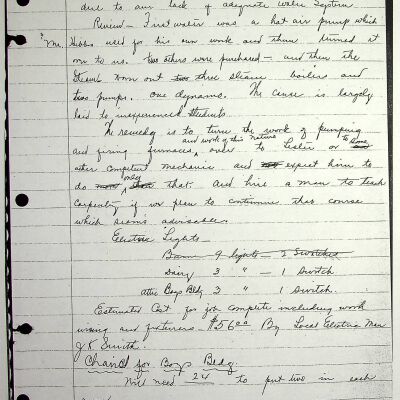 due to our lack of adequate water system
Review - First water was a hot air pump which
Mr. Hibbs used for his own work and then turned it
on to us. two others were purchased - and then the
steam worn out three steam boilers and
two pumps. one dynamo. The cause is largely
laid to inexperienced students
The remedy is to turn the work of pumping
and firing furnaces, and work of this nature over to Leslie or to some
other competent mechanic and expect him to
do only that. And hire a man to teach
Carpentry if we plan to continue that course
which seems advisable.
Electric Lights -
Barn 9 lights - 2 Switches
Dairy 3 " - 1 Switch
attic Boys Bldg 3 " 1 Switch.
Estimated Cost for job complete including work
wiring and fixtures. $56.00 By Local Electric Man
J K Smith.
Chairs for Boys Bldg.
Will need 24 to put two in each